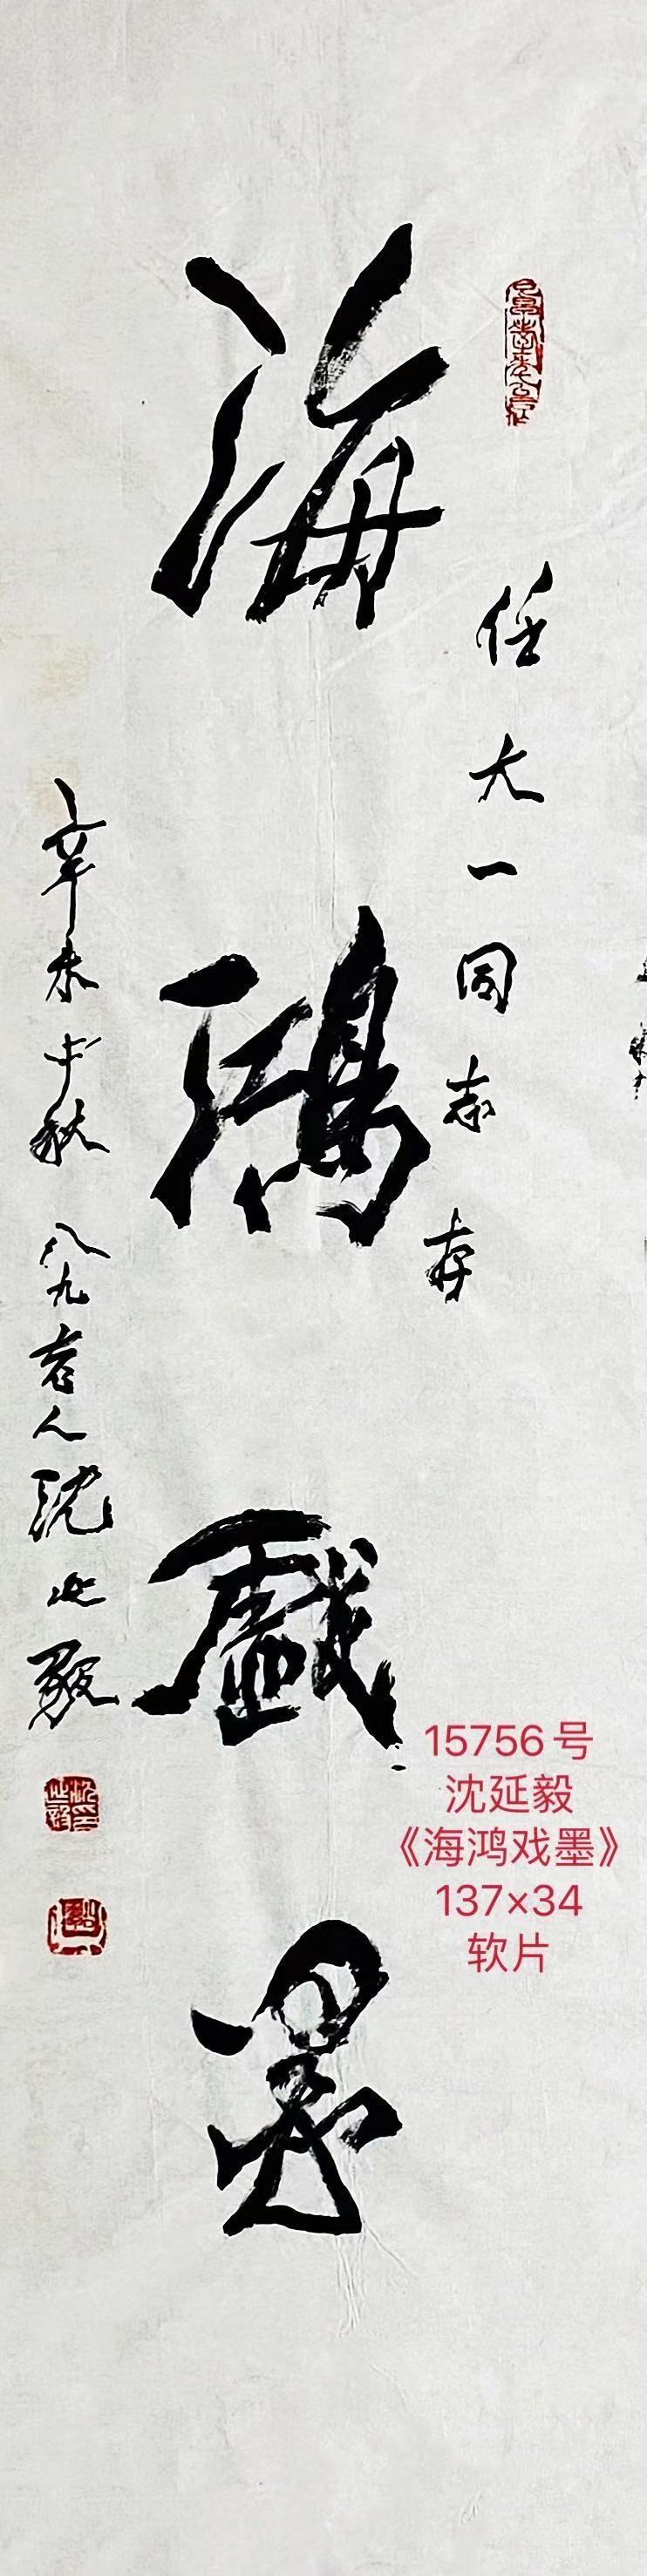 任大一同志存
海鸿戯墨
辛未中秋 八九老人沈延毅
15756号
沈延毅
《海鸿戏墨》
137×34
软片